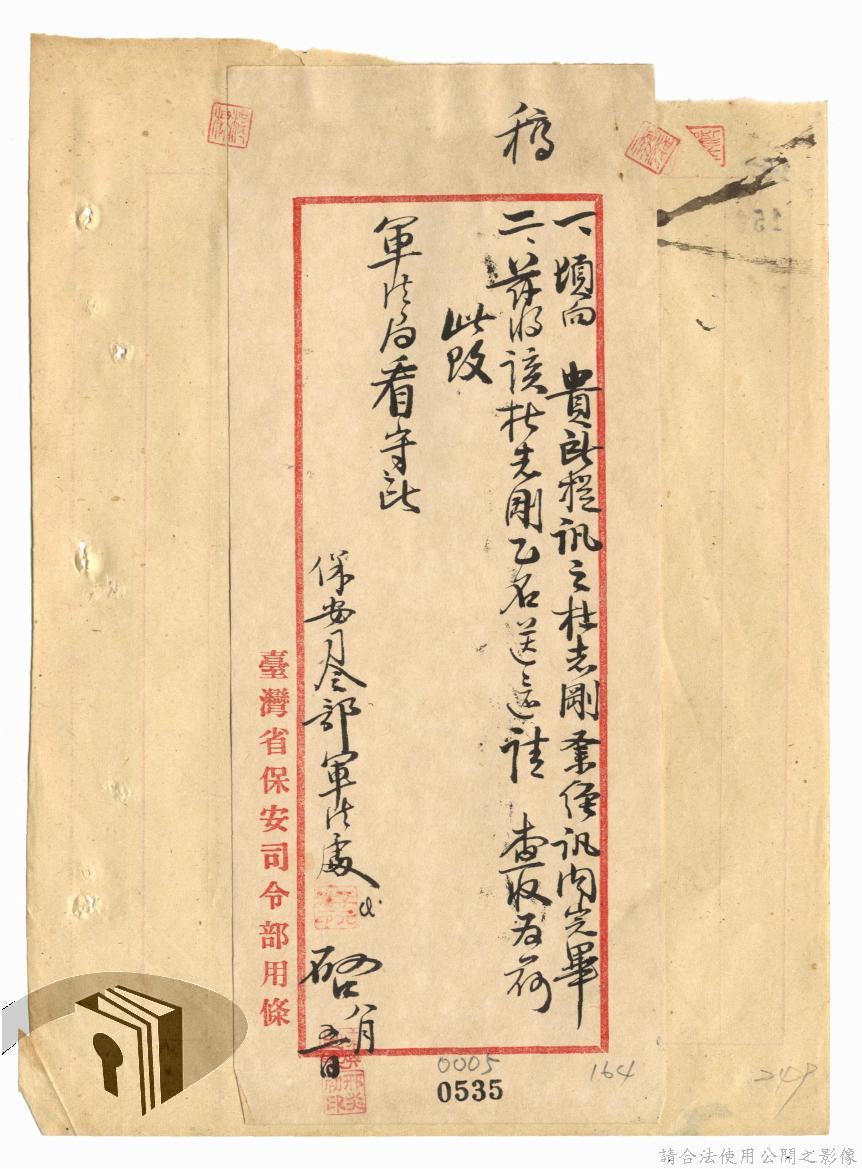 稿
一、頃向 貴所提訊之杜志剛業經訊問完畢
二、茲將該杜志剛乙名送還請 查收為荷
此致
軍法局看守所
保安司令部軍法處 啓 八月
五日
臺灣省保安司令部用條
0005
0535
164
249
請合法使用公開之影像